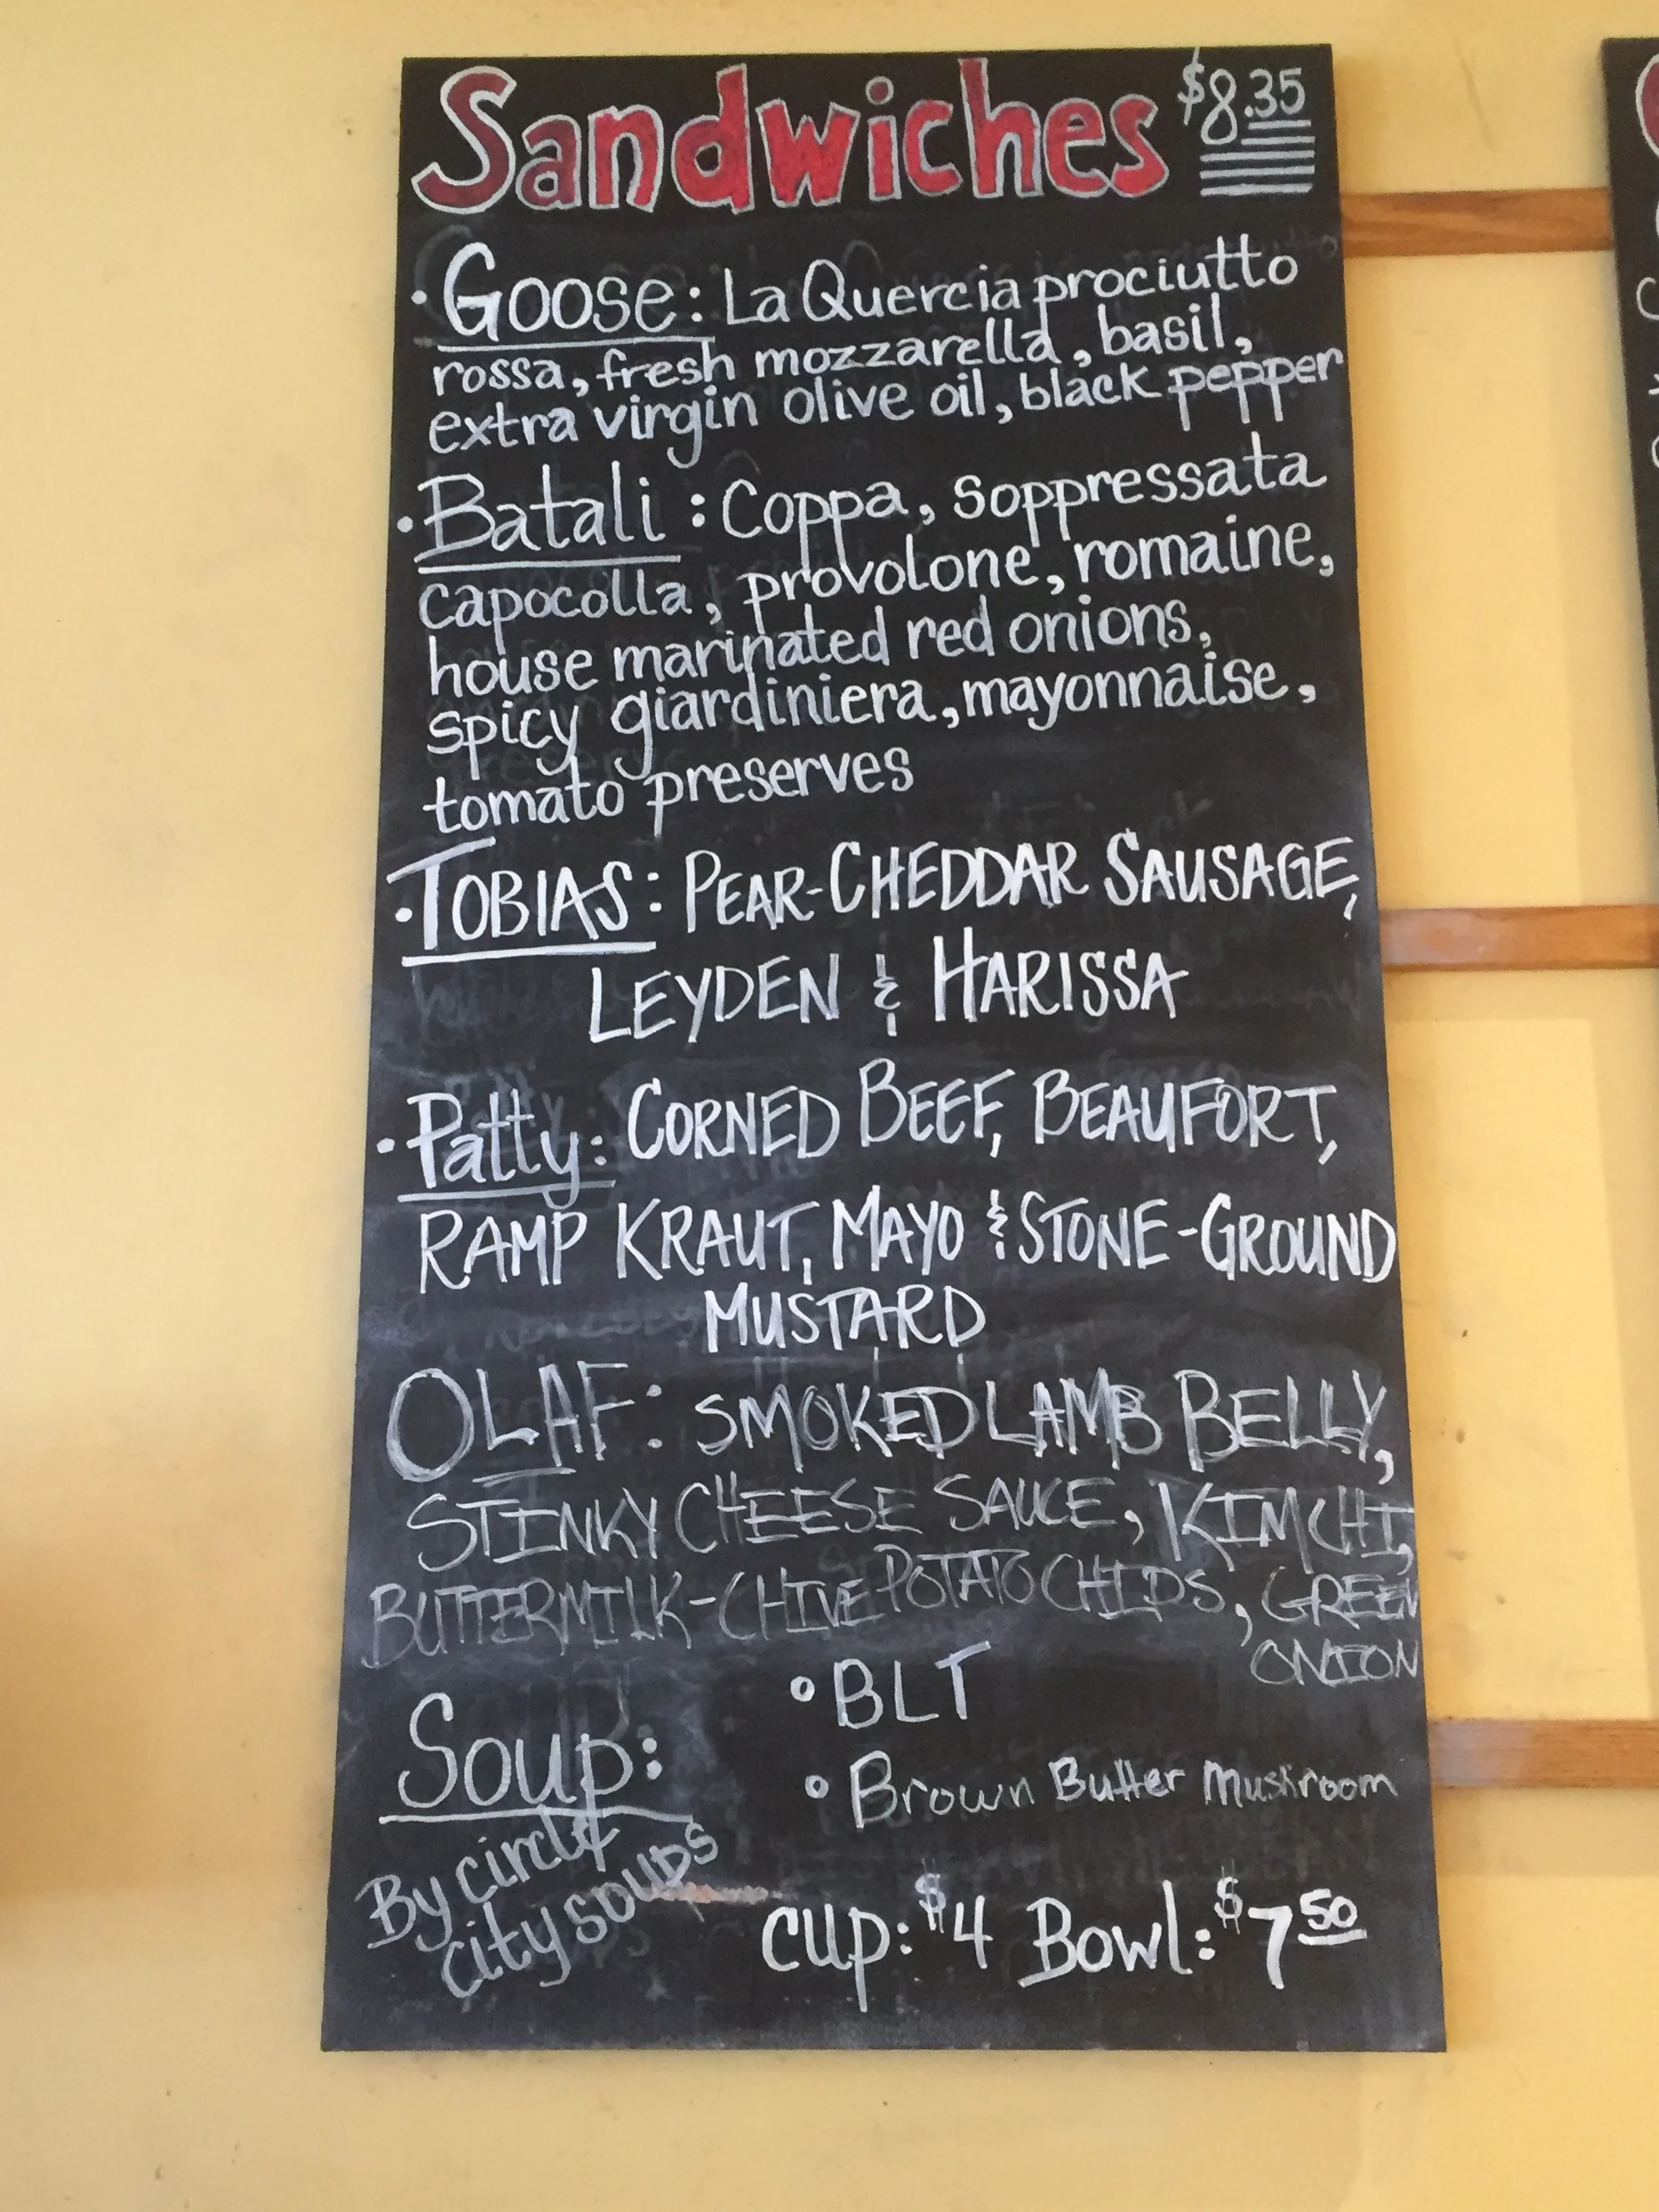 Sandwiches $8.35
• Goose: La Quercia prociutto
rossa, fresh mozzarella, basil,
extra virgin olive oil, black pepper
• Batali: Coppa, soppressata
capocolla, provolone, romaine,
house marinated red onions,
spicy giardiniera, mayonnaise,
tomato preserves
• TOBIAS: PEAR-CHEDDAR SAUSAGE,
LEYDEN & HARISSA
• Patty: CORNED BEEF, BEAUFORT,
RAMP KRAUT, MAYO & STONE-GROUND
MUSTARD
OLAF: SMOKED LAMB BELLY,
STINKY CHEESE SAUCE, KIMCHI,
BUTTERMILK-CHIVE POTATO CHIPS, GREEN
ONION
Soup:
By circle
city soups
• BLT
• Brown Butter Mushroom
cup: $4 Bowl: $7 50